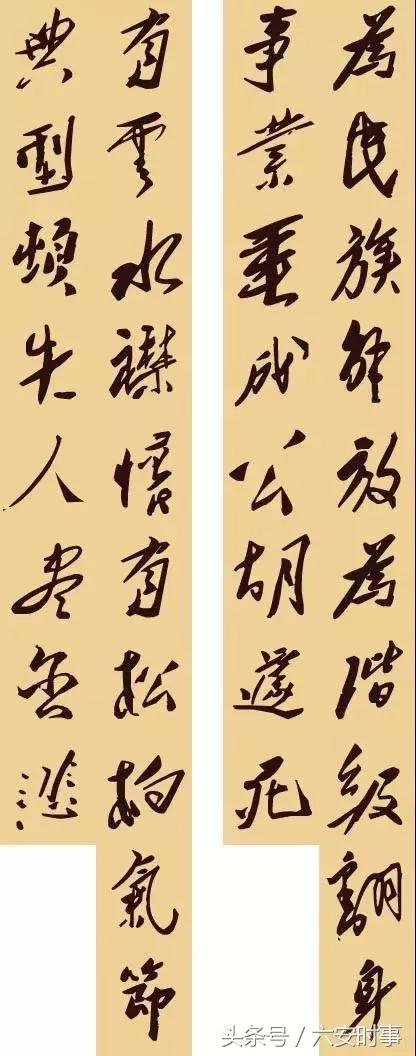 為民族解放為階級翻身
事業垂成公胡遽死
有雲水襟懷有松柏氣節
典型頓失人盡含悲
头条号 / 六安时事